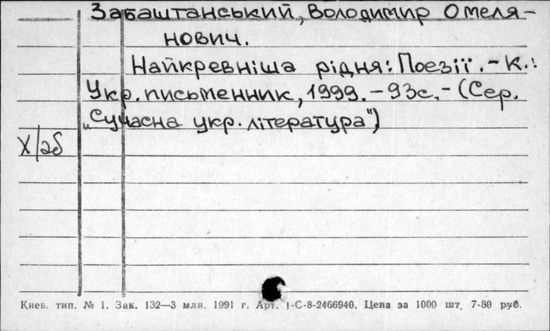 Забаштанський, Володимир Омеля-
нович.
Найкревніша рідня: Поезії. - К.:
Укр. письменник, 1999. - 93с. - (Сер.
„Сучасна укр. література")
Х/аб
Киев. тип. № 1. Зак. 132—3 млн. 1991 г. Арт. 1-С-8-2466940. Цена за 1000 шт. 7-80 руб.